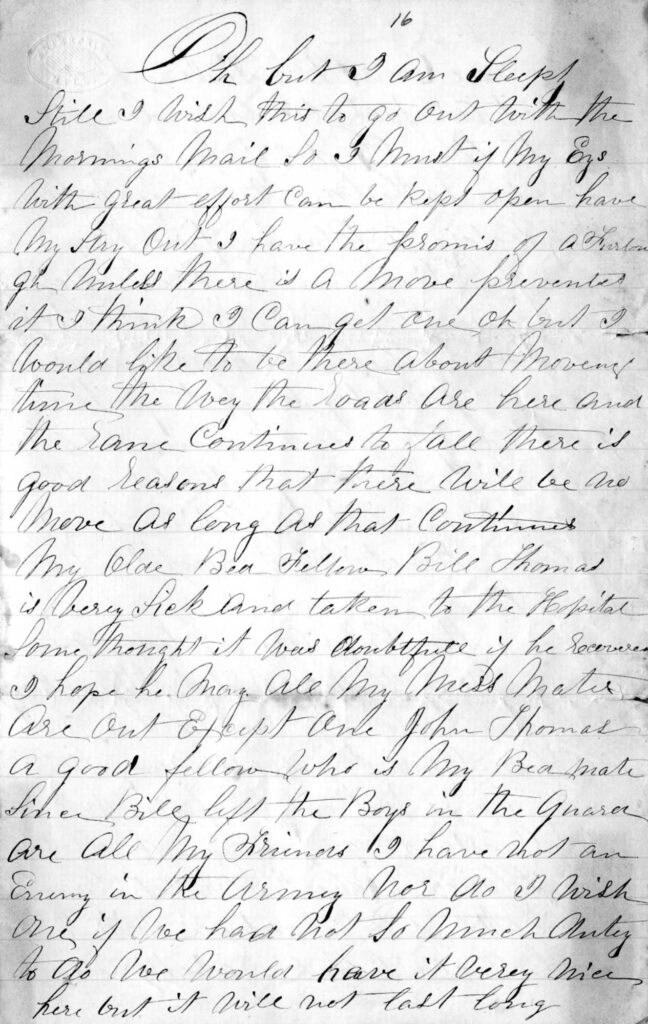 16
Oh but I am Sleepy
Still I wish this to go out with the
Mornings Mail So I Must if My Eys
With great effort Can be kept open have
My Say Out I have the promis of a Furlou
gh Unless there is a Move prevented
it I think I Can get one oh but I
Would like to be there about Moveing
time the Wey the Roads are here and
the Rane Continues to fall there is
good Reasons that there Will be no
Move As long As that Continues
My Olde Bed Fellow Bill Thomas
is Verey Sick and taken to the Hopital
Some thought it Was doubtfull if he Recovered
I hope he May All My Mess Mates
Are Out Except One John Thomas
a good fellow Who is My Bed mate
Since Bill left the Boys in the Guard
are All My Friends I have Not an
Enemy in the Armey Nor do I Wish
One if We had Not So Much Dutey
to do We Would have it Verey Nice
here but it Will not last long